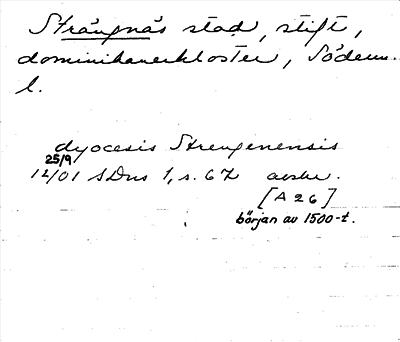 Strängnäs stad, stift,
dominikanerkloster, Söderm.
l.
dyocesis Strengenensis
25/9
12/01 SDns 1, s. 67 avskr.
[A 26]
början av 1500-t.